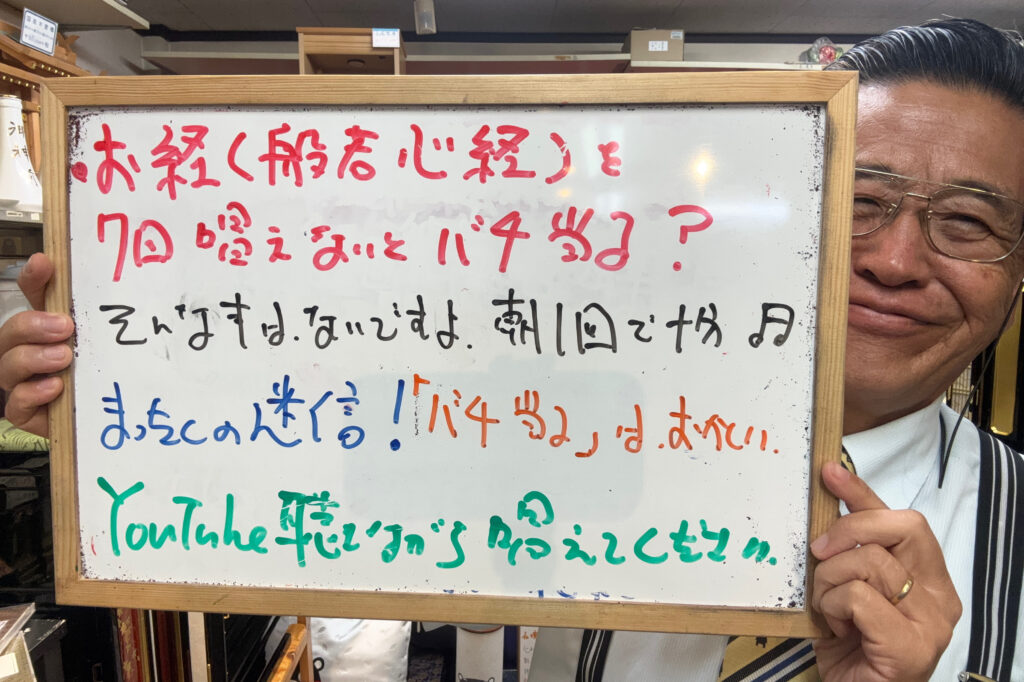 お経(般若心経)を
7回唱えないとバチ当る?
そんなすは、ないですよ.朝1回で十分
まったくの迷信!「バチ当る」は、おかしい.
YouTube聴きながら唱えてください.